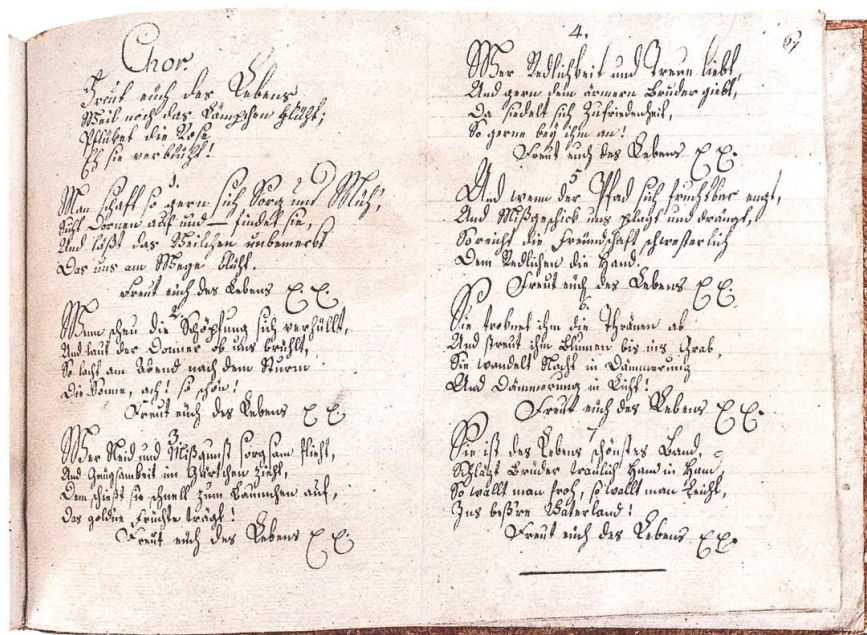 Chor.
Freut euch des Lebens
Weil noch das Lämpchen glüht;
Pflüket die Rose
Eh sie verblüht!
1.
Man schaft so gern sich Sorg und Müh,
Sucht Dornen auf und — findet sie,
Und läßt das Veilchen unbemerkt
Das uns am Wege blüht.
Freut euch des Lebens
2
Wenn scheu die Schöpfung sich verhüllt,
Und laut der Donner ob uns brüllt,
So lacht am Abend nach dem Sturm
Die Sonne, ach! so schön!
Freut euch des Lebens
3
Wer Neid und Mißgunst sorgsam flieht,
Und Gnügsamkeit im Gärtchen zieht,
Dem schießt sie schnell zum Bäumchen auf,
Das goldne Früchte trägt!
Freut euch des Lebens
4.
Wer Redlichkeit und Treue liebt,
Und gern dem ärmern Bruder giebt,
Da siedelt sich Zufriedenheit,
So gerne bey ihm an!
Freut euch des Lebens
5
Und wenn der Pfad sich furchtbar engt,
Und Mißgeschick uns plagt und drängt,
So reicht die Freundschaft schwesterlich
Dem Redlichen die Hand.
Freut euch des Lebens
6.
Sie troknet ihm die Thränen ab
Und streut ihm Blumen bis ins Grab,
Sie wandelt Nacht in Dämmerung
Und Dämmerung in Licht!
Freut euch des Lebens
7
Sie ist des Lebens schönstes Band,
Schlagt Brüder traulich Hand in Hand,
So wallt man froh, so wallt man leicht,
Ins beßre Vaterland!
Freut euch des Lebens